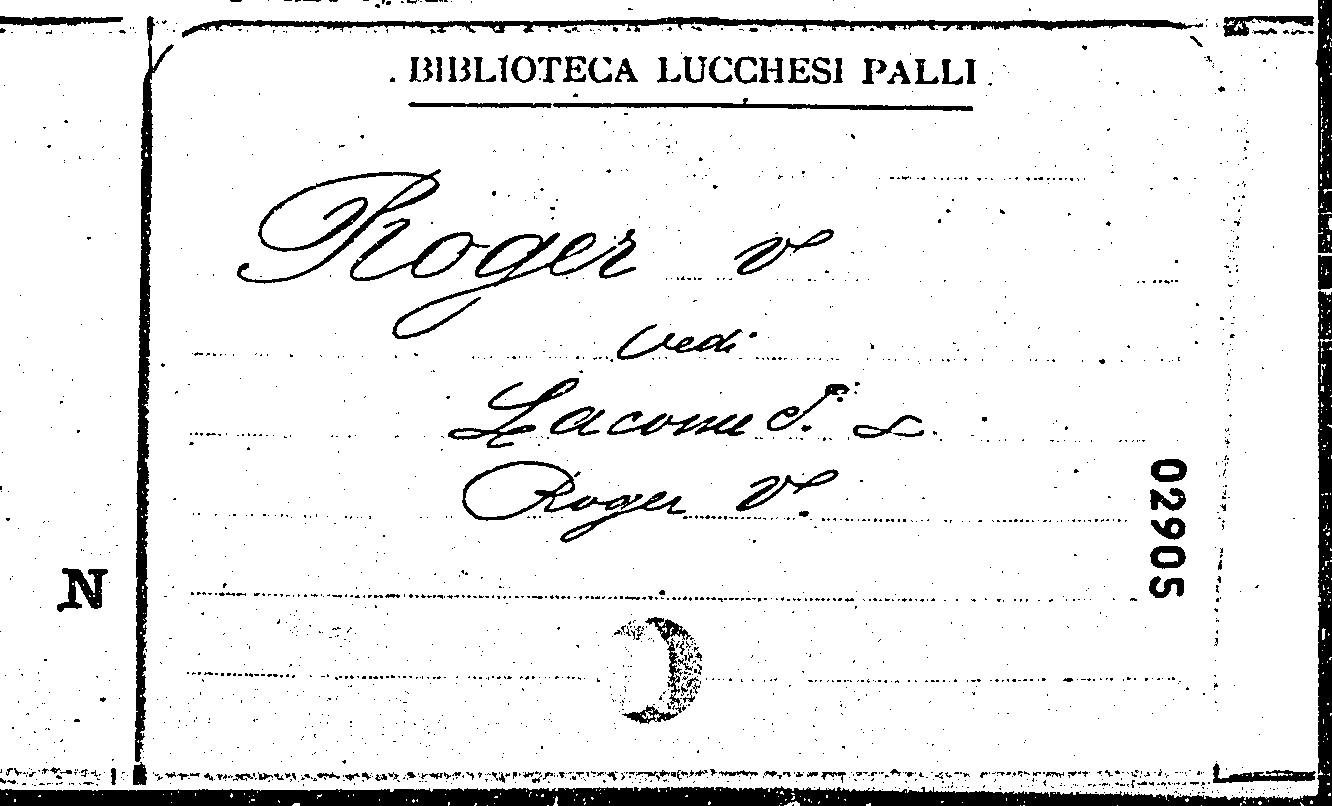 BIBLIOTECA LUCCHESI PALLI
Roger V
vedi
Lacome P. &
Roger V.
02905
N